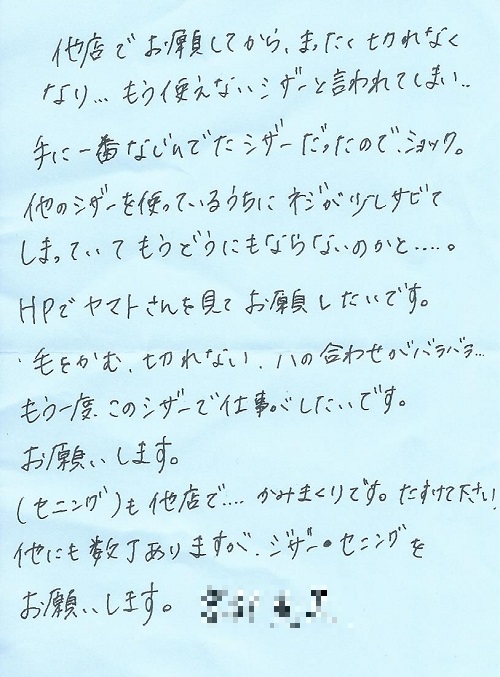 他店でお願してから、まったく切れなく
なり...もう使えないシザーと言われてしまい..
手に一番なじんでたシザーだったので、ショック。
他のシザーを使っているうちにネジが少しサビて
しまっていてもうどうにもならないのかと....。
HPでヤマトさんを見てお願したいです。
・毛をかむ、切れない、ハの合わせがバラバラ...
もう一度、このシザーで仕事がしたいです。
お願いします。
(セニング)も他店で....かみまくりです。たすけて下さい!
他にも数丁ありますが、シザー・セニングを
お願いします。